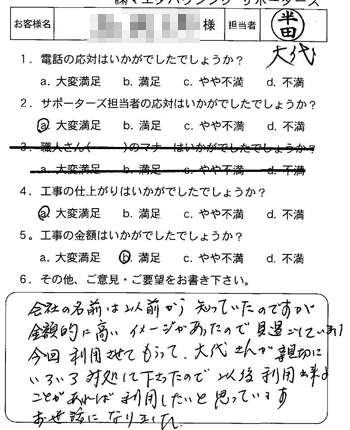 ㈱マエダハウジング サポーターズ
お客様名 様 担当者 半田
大代
1. 電話の応対はいかがでしたでしょうか?
a. 大変満足 b. 満足 c. やや不満 d. 不満
2. サポーターズ担当者の応対はいかがでしたでしょうか?
a. 大変満足 b. 満足 c. やや不満 d. 不満
3. 職人さん( )のマナーはいかがでしたでしょうか?
a. 大変満足 b. 満足 c. やや不満 d. 不満
4. 工事の仕上がりはいかがでしたでしょうか?
a. 大変満足 b. 満足 c. やや不満 d. 不満
5. 工事の金額はいかがでしたでしょうか?
a. 大変満足 b. 満足 c. やや不満 d. 不満
6. その他、ご意見・ご要望をお書き下さい。
会社の名前は以前から知っていたのですが
金額的に高いイメージがあったので見過ごしていました
今回利用させてもらって、大代さんが親切に
いろいろ対処して下さったので以後利用出来る
ことがあれば利用したいと思っています
お世話になりました